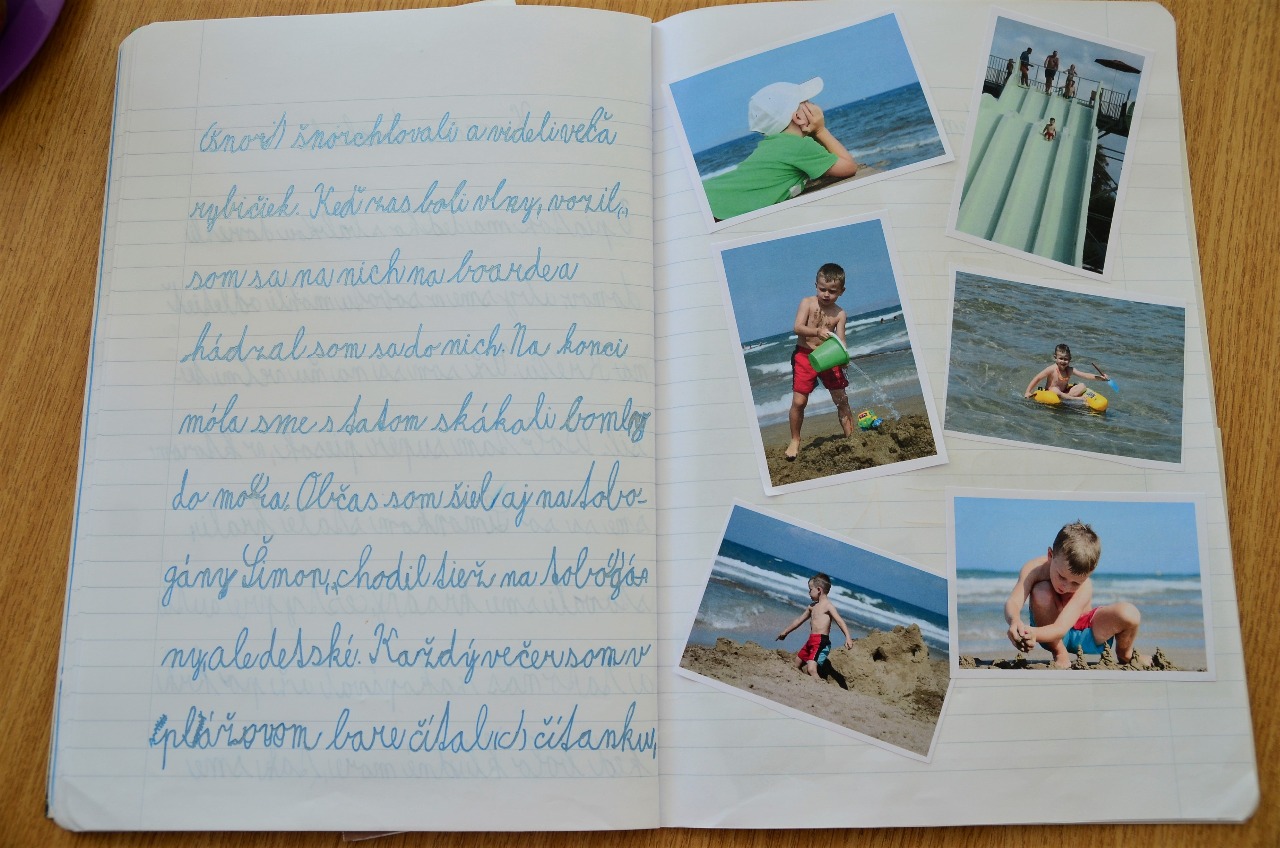 (šnor) šnorchlovali a videli veľa
rybičiek. Keď zas boli vlny, vozil
som sa na nich na boarde a
hádzal som sa do nich. Na konci
móla sme s tatom skákali bomby
do mora. Občas som šiel aj na tobo-
gány Šimon, chodil tiež na tobogá-
ny, ale detské. Každý večer som v
plážovom bare čítal čítanku,